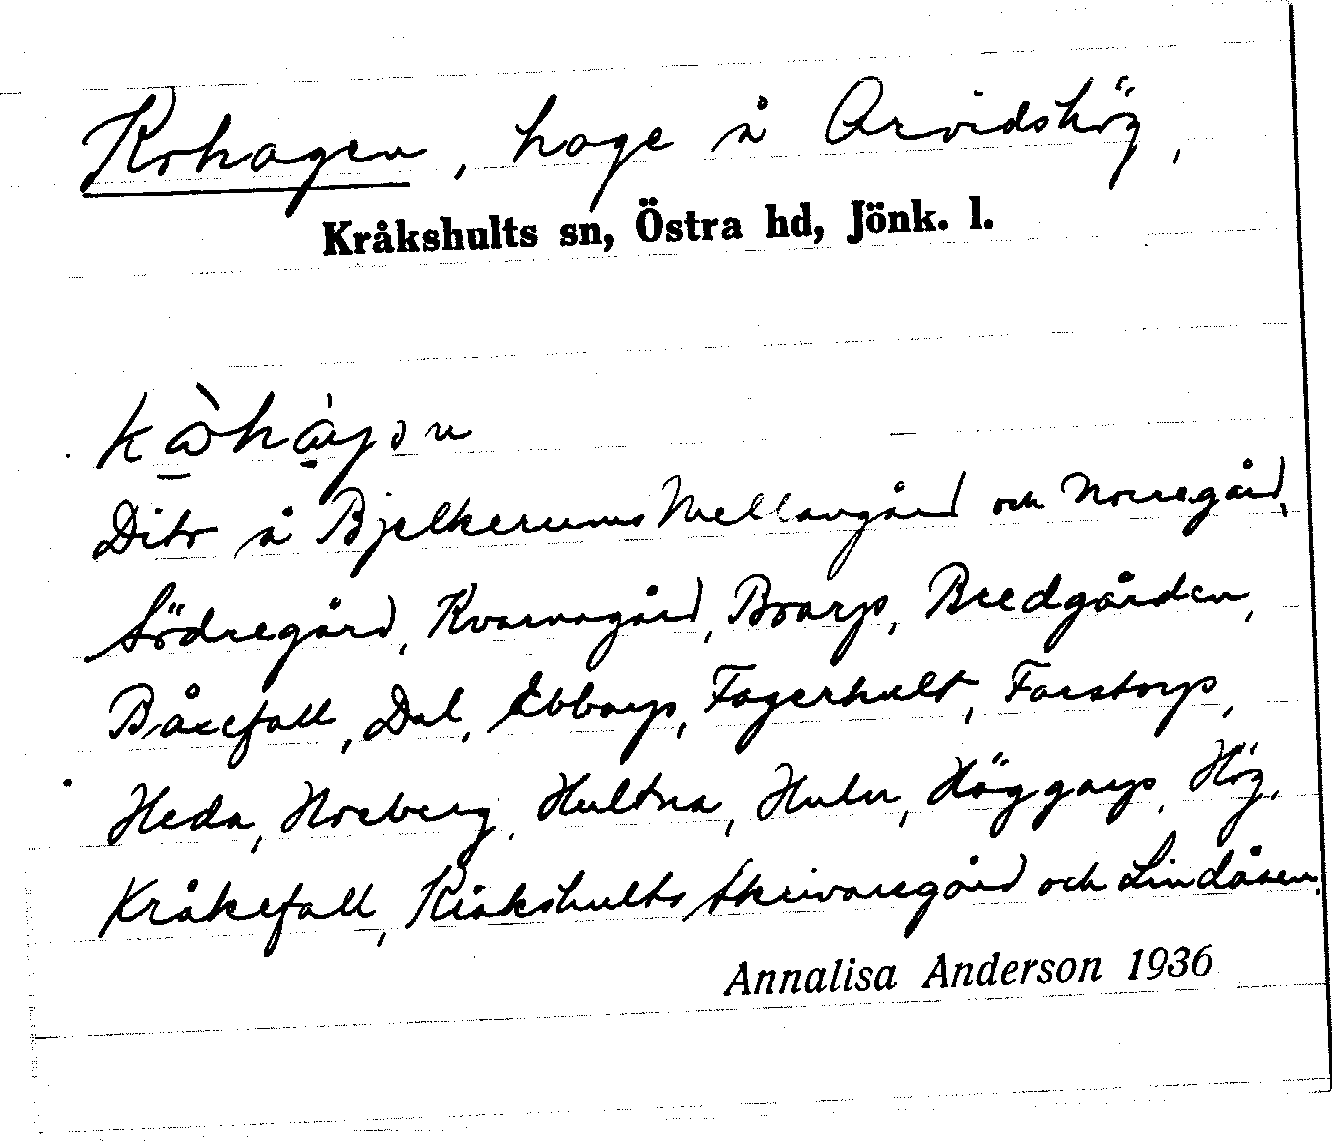 Kohagen, hage å Arvidshög,
Kråkshults sn, Östra hd, Jönk. l.
Dito å Bjelkerums Mellangård och Norregård,
Södregård, Kvarnagård, Broarp, Bredgården,
Båxefall, Dal, Ebbarp, Fagerhult, Farstorp,
Heda, Horeberg, Hultna, Hulu, Häggarp, Hög,
Kråkefall, Kråkshults Skrivaregård och Lindåsen.
Annalisa Anderson 1936